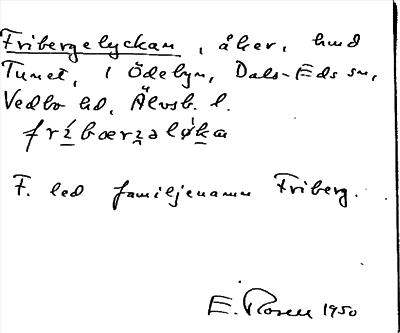 Fribergelyckan, åker, hmd
Tunet, 1 Ödebyn, Dals-Eds sn,
Vedbo hd, Älvsb. l.
fríbœrzəlỳka
F. led familjenamn Friberg.
E. Rosell 1950